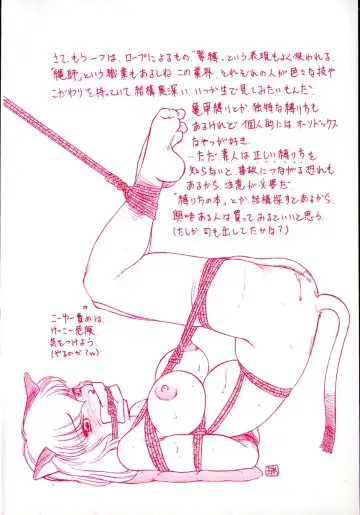 さて、もう一つは、ロープによるもの。"緊縛"という表現もよく使われる。
「縄師」という職業もあるしね。この業界、それぞれの人が色々な技や
こだわりを持っていて、結構奥深い。いつかまで見てみたいもんだ。
亀甲縛りとか、独特な縛り方も
あるけれど、個人的には、オーソドックス
なやつが好き。
…ただ、素人は正しい縛り方を
知らないと、事故につながる恐れも
あるから、注意が必要だ。
"縛り方の本"とか、結構探すとあるから、
興味ある人は買ってみるといいと思う。
(たしか可も出してたかな?)
こーゆー責めは、
けっこー危険。
気をつけよう。
(やるのか?w)